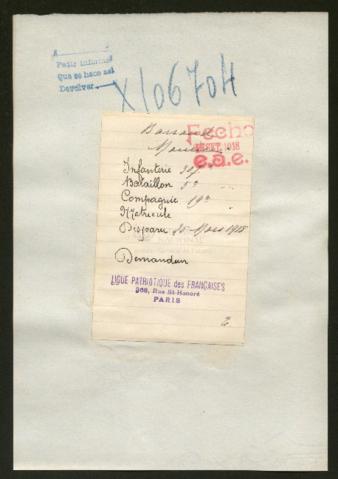 A
Pedir informes
Que se hace así
Devolver
X106704
Fecho
SET. 1918
e.a.e.
Infanterie
Bataillon 5e
Compagnie 19e
Matricule
Disparu Mars 1918
Demandeur
LIGUE PATRIOTIQUE des FRANÇAISES
368, Rue St-Honoré
PARIS